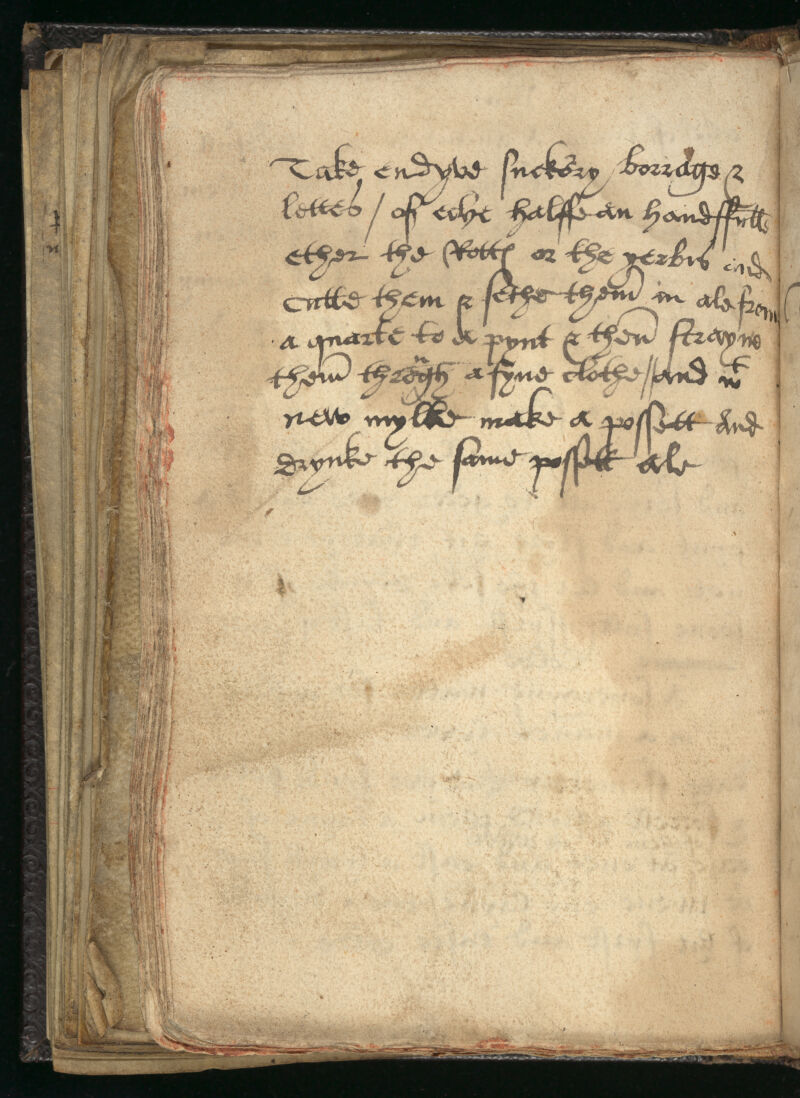 Take endyve suckory / borrage &
lettes / of eche halffe an handffull
ether the Rott or the yerbis and
cutte them & sethe them in ale from
a quarte to a pynt & then strayne
them throgh a fyne clothe // and wt
new mylke make a possett And
drynke the same possett ale